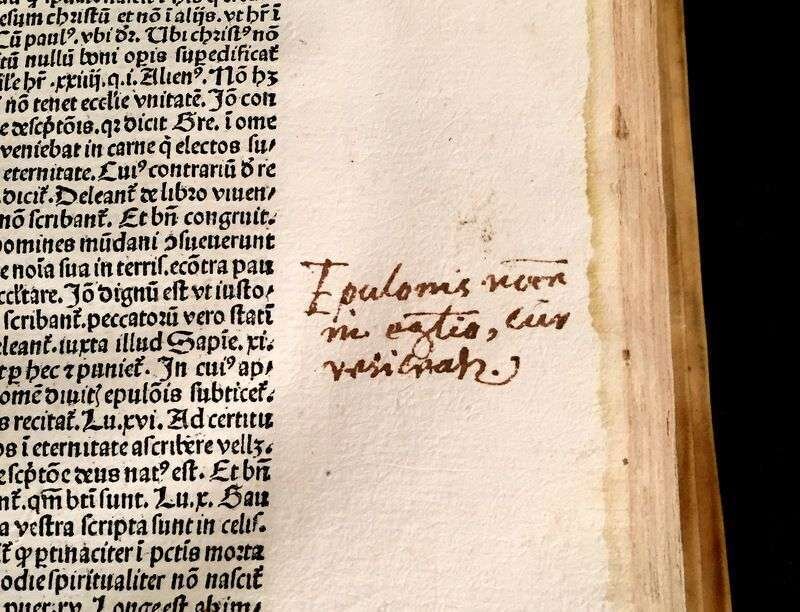 esum christū et nō ī alijs. vt hr̄ ī
Cū paulꝰ. vbi dr̄. Ubi christꝰ nō
tū nullū boni opīs suꝑedificat̄
hr̄ .xxiiij.q.i. Alienꝰ. Nō hꝫ
nō tenet eccl̄ie vnitatē. Jō con
e descp̄tōis.qꝛ dicit Gre. ī ome
veniebat in carne q̄ electos su/
eternitate. Cuiꝰ contrariū d̄ re
dicit̄. Deleant̄ de libro viuen/
nō scribant̄. Et bn̄ congruit.
homines mūdani ɔsueuerunt
e noīa sua in terris.ecōtra pau
ccl̄tare. Jō dignū est vt iusto/
scribant̄.peccatorū vero statī
eleant̄.iuxta illud Sapīe. xi.
tꝑ hec ⁊ puniet̄. In cuiꝰ ap/
omē diuit̄ epulōis subticet̄.
s recitat̄. Lu.xvi. Ad certitu
os ī eternitate ascribēre vellꝫ.
escp̄tōe deus natꝰ est. Et bn̄
nt̄.qm̄ bt̄i sunt. Lu.x. Gau
a vestra scripta sunt in celis.
ꝙ ꝑtinaciter ī pct̄is morta
odie spiritualiter nō nascit̄
puer.xv. Longe est abim/
Epulonis nomē
in eglio, cur